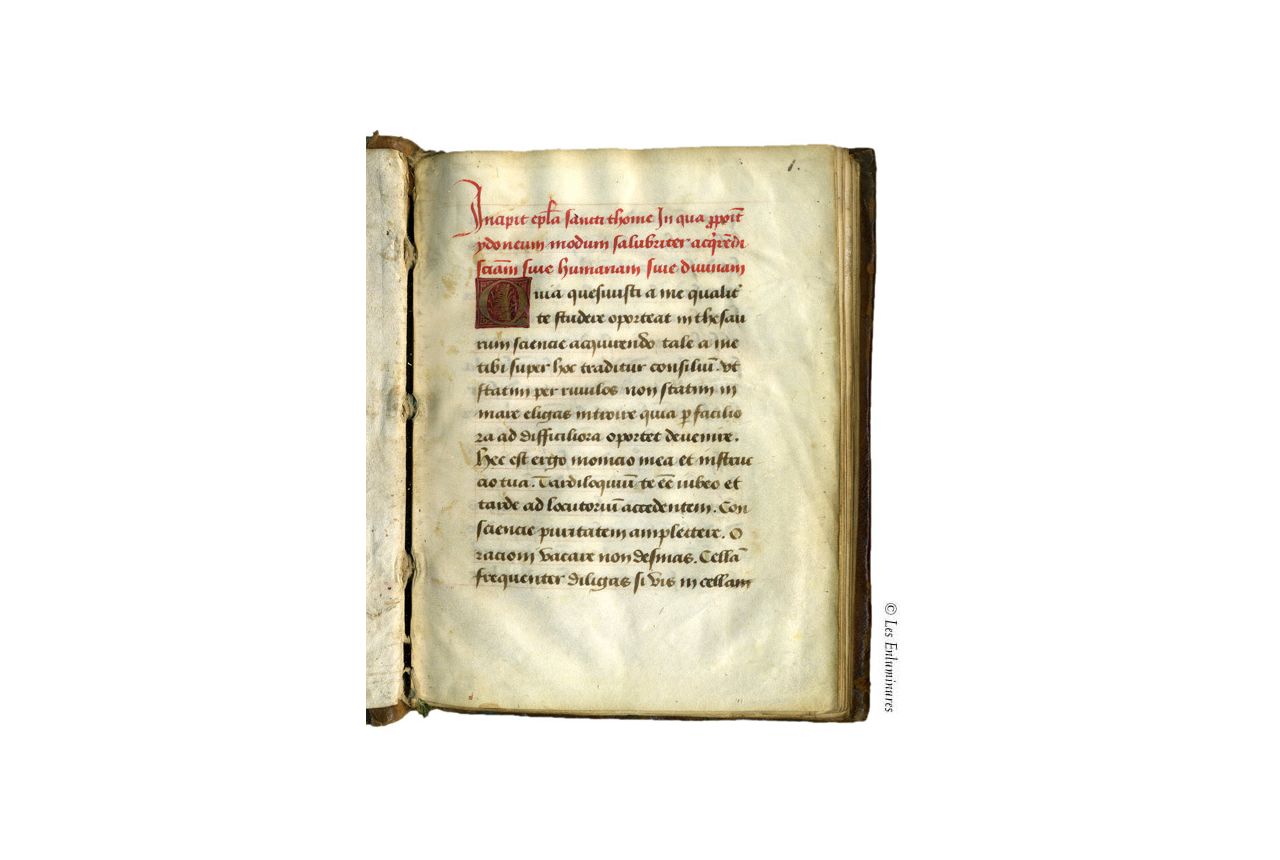 1.
Incipit ep̄la sancti thome In qua ꝓpoīt
ydoneum modum salubriter acq̄rēdi
sciām siue humanam siue diuinam
Quia quesiuisti a me qualit̄
te studere oporteat in thesau
rum sciencie acquirendo tale a me
tibi super hoc traditur consiliū. vt
statim per riuulos non statim in
mare eligas introire quia ꝑ facilio
ra ad difficiliora oportet deuenire.
Hec est ergo monicio mea et instruc
cio tua. Tardiloquiū te eē iubeo et
tarde ad locutoriū accedentem. Con
sciencie puritatem amplectere. O
racioni vacare non desinas. Cellā
frequenter diligas si vis in cellam
© Les Enluminures